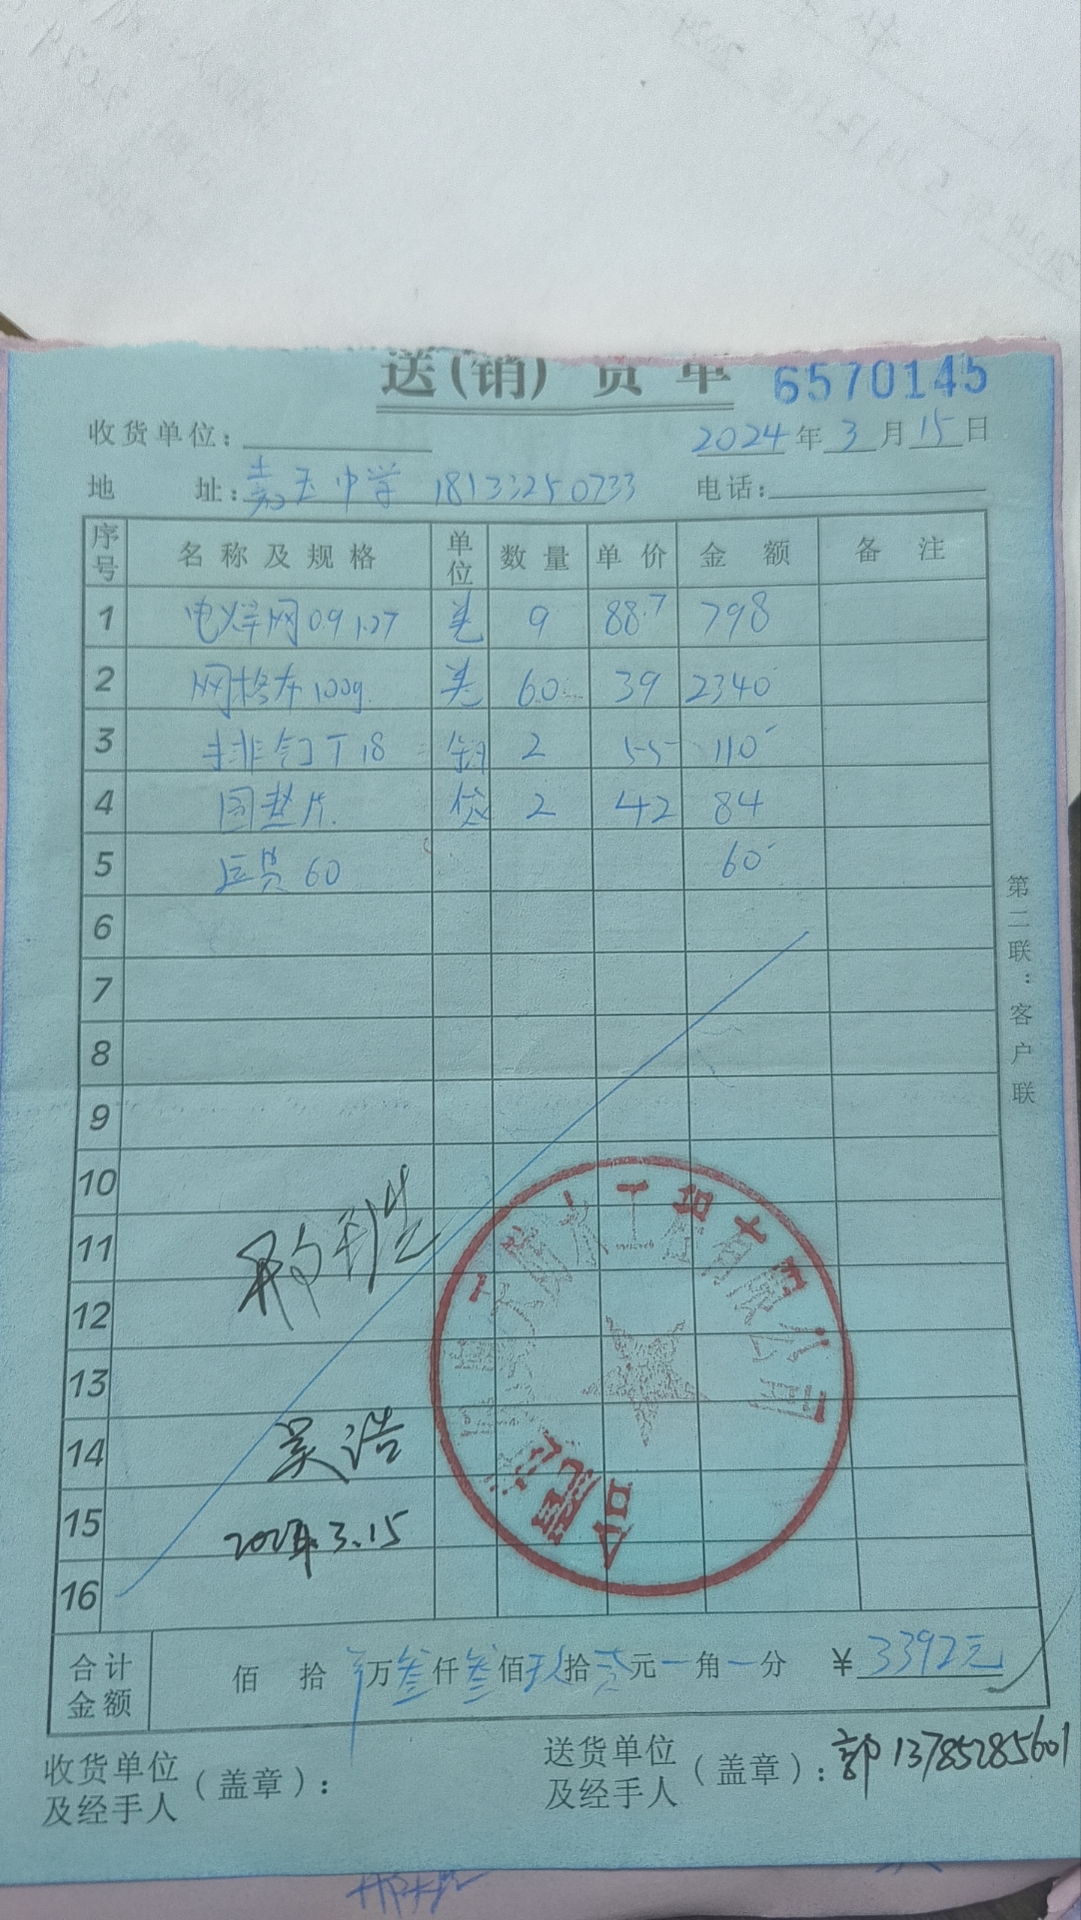 送(销)货单 6570145
收货单位: 2024年3月15日
地 址: 嘉玉中学 18133250733 电话:
序号 名称及规格 单位 数量 单价 金额 备注
1 电焊网0.9 1.27 卷 9 88.7 798
2 网格布100g 卷 60 39 2340
3 排钉T18 2 55 110
4 圆垫片 袋 2 42 84
5 运费60 60
6
7
8
9
10
11
12
13
14 吴浩
15 2024年.3.15
16
合计金额 佰 拾 万叁仟叁佰玖拾贰元 角 分 ¥3392元
收货单位及经手人(盖章):
送货单位及经手人(盖章): 郭 13785285601
第二联:客户联
合肥 防水工程有限公司